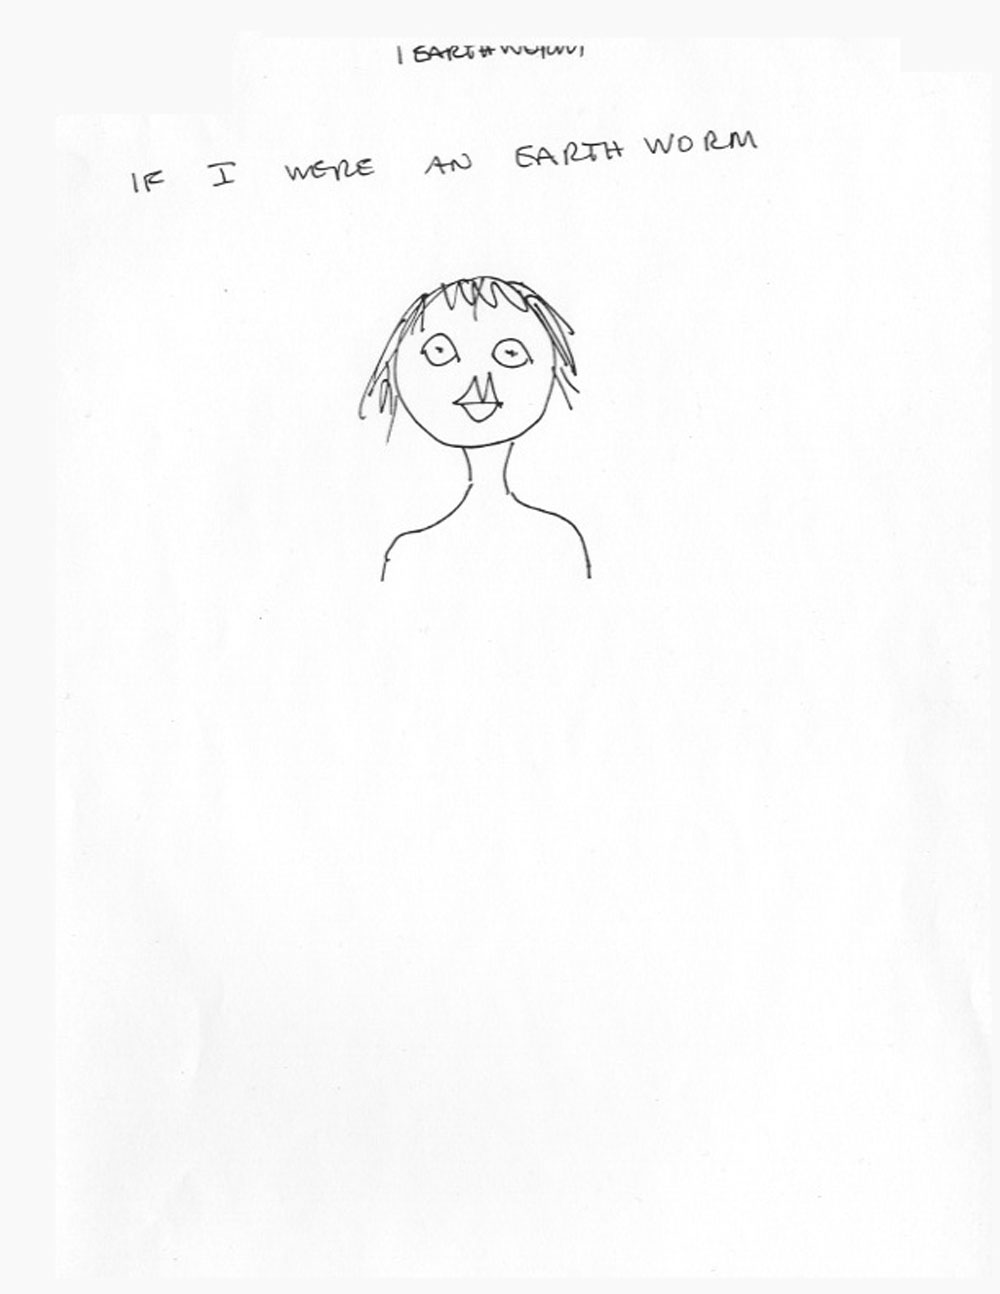 1 EARTHWORM
IF I WERE AN EARTH WORM